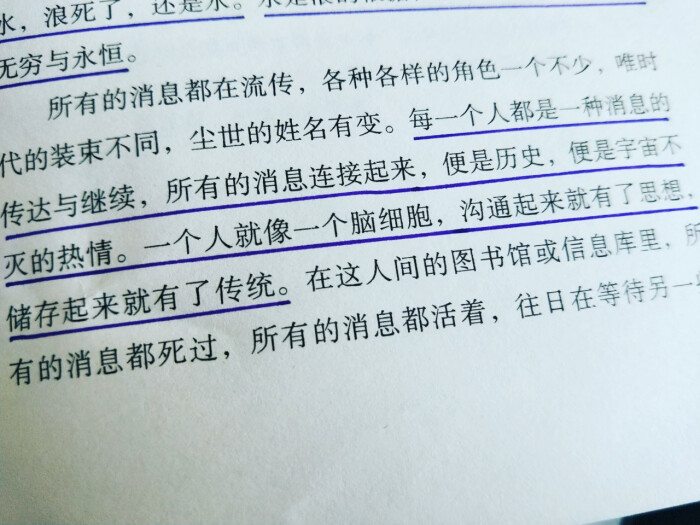 水，浪死了，还是水。水是浪的
无穷与永恒。
所有的消息都在流传，各种各样的角色一个不少，唯时
代的装束不同，尘世的姓名有变。每一个人都是一种消息的
传达与继续，所有的消息连接起来，便是历史，便是宇宙不
灭的热情。一个人就像一个脑细胞，沟通起来就有了思想，
储存起来就有了传统。在这人间的图书馆或信息库里，所
有的消息都死过，所有的消息都活着，往日在等待另一